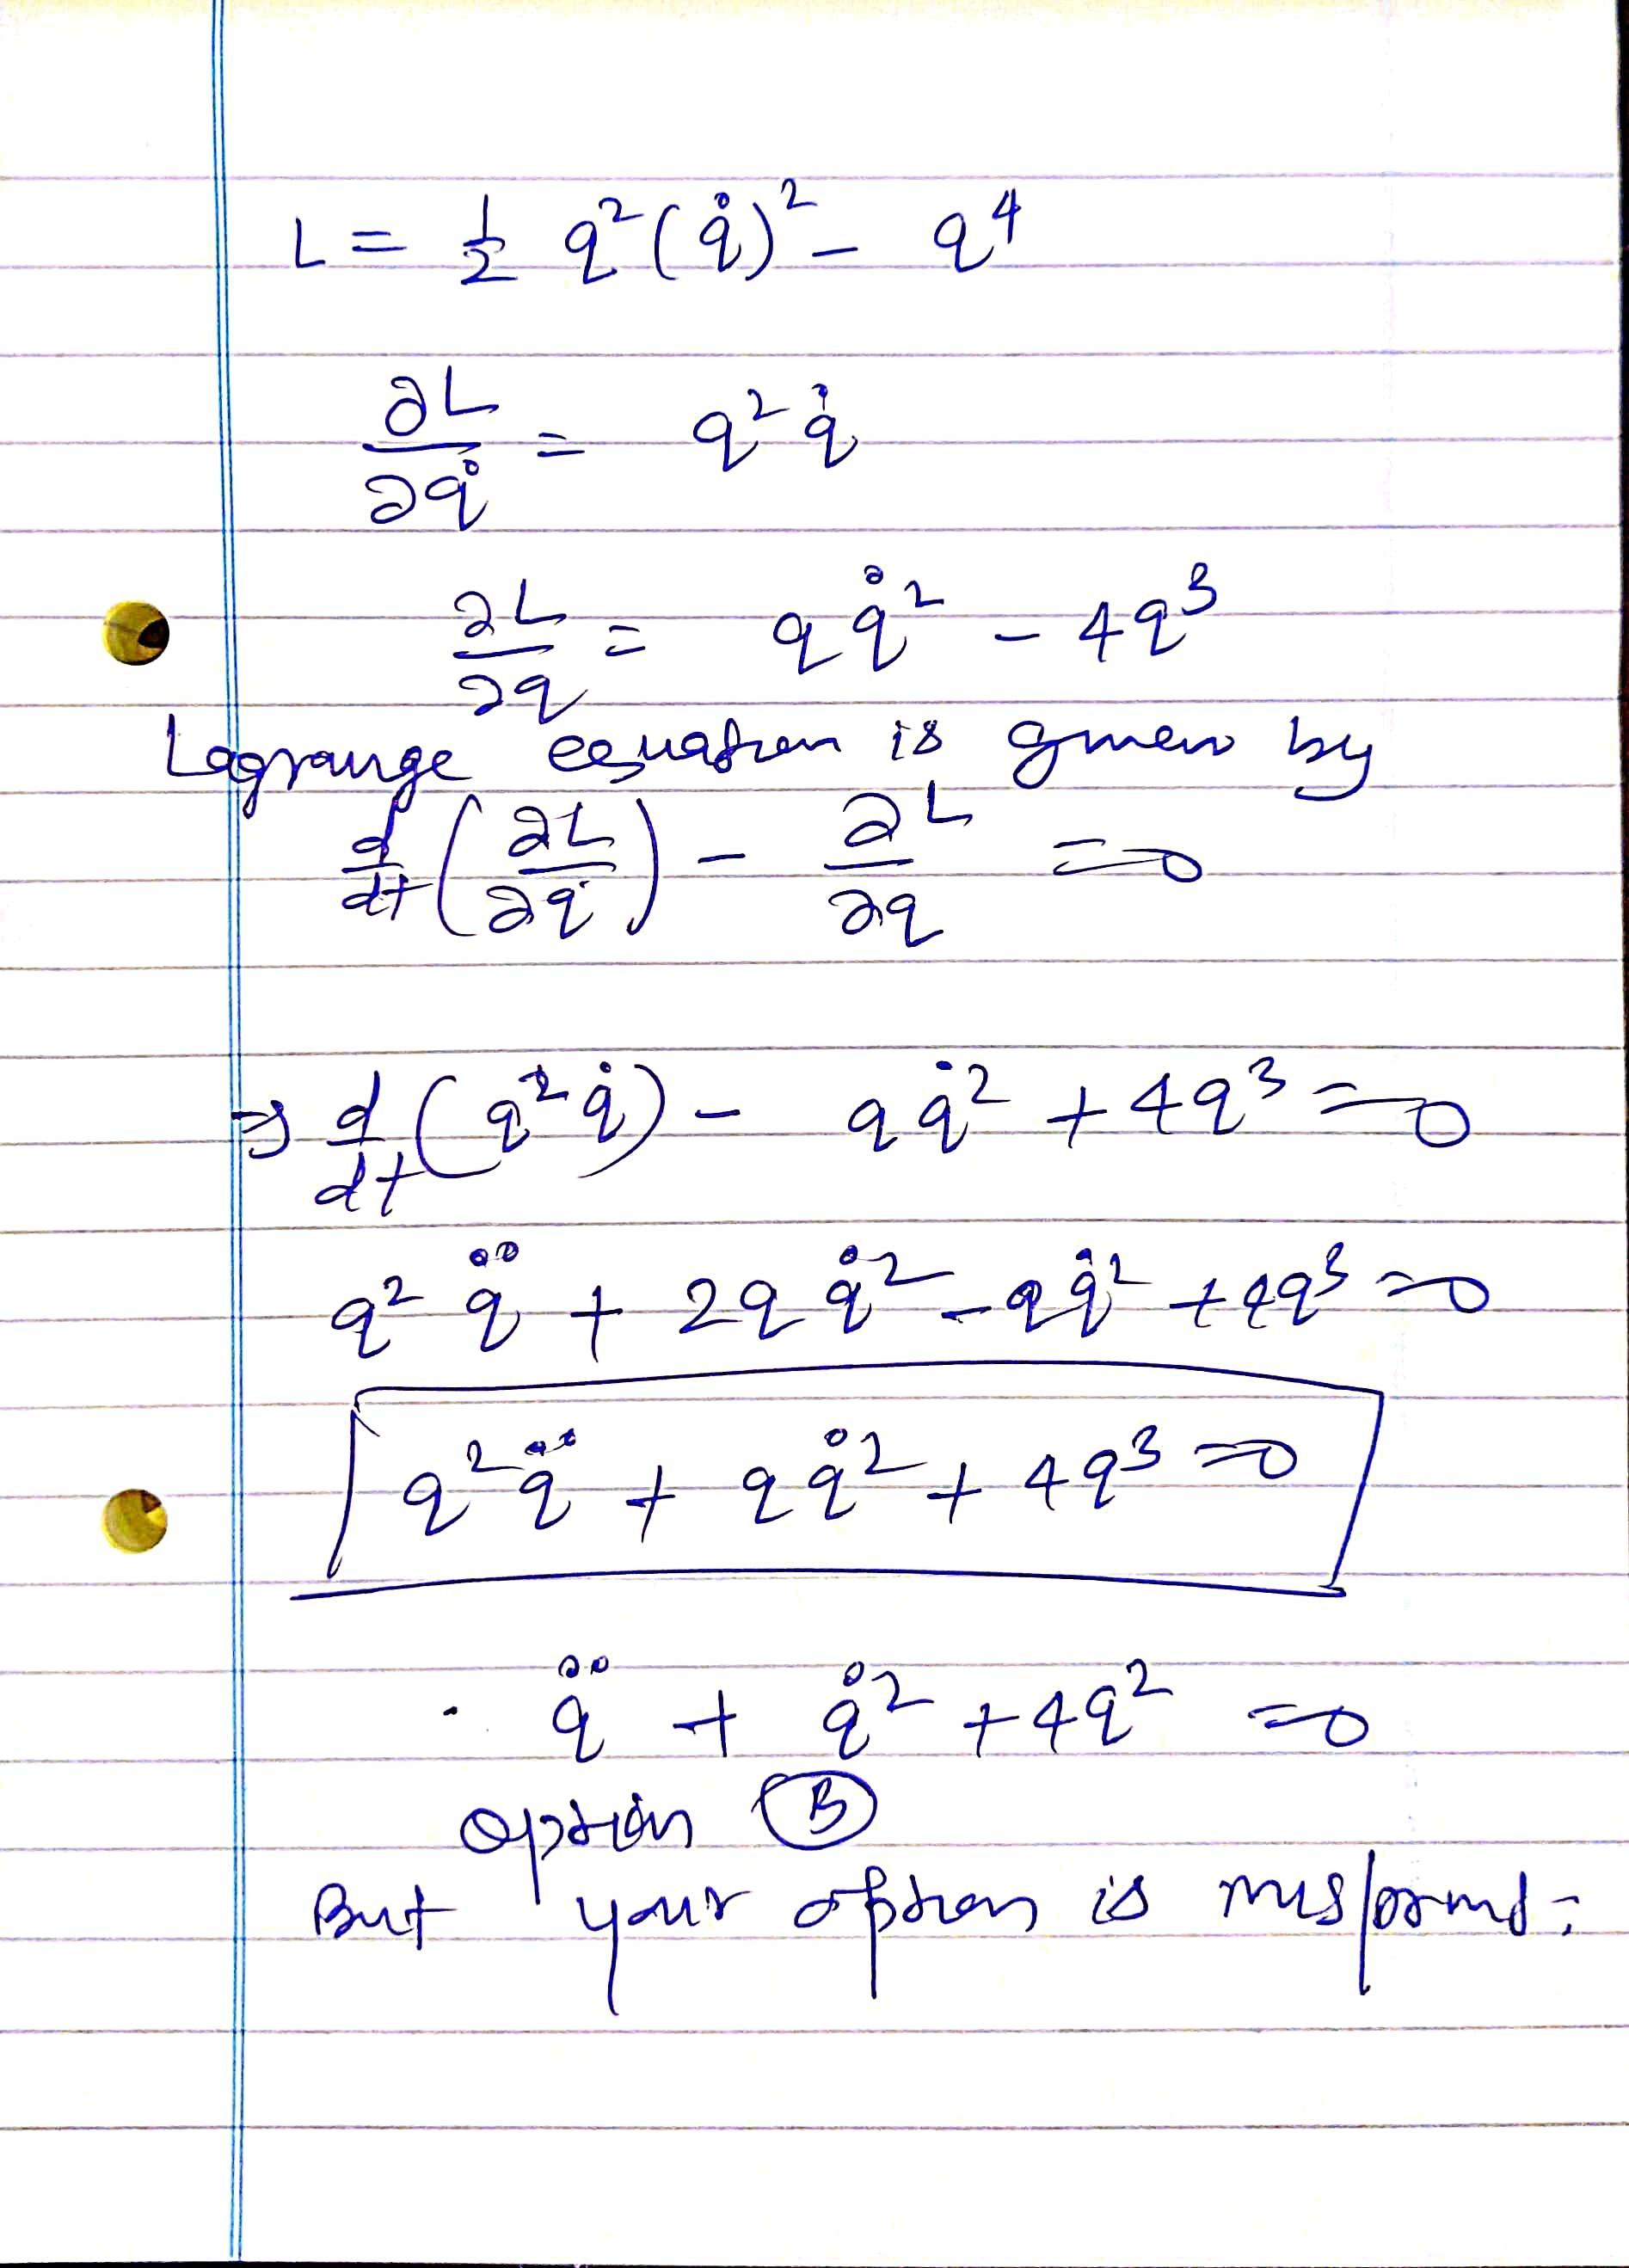 L = 1/2 q² (q̇)² - q⁴
∂L/∂q̇ = q² q̇
∂L/∂q = q q̇² - 4q³
Lagrange equation is given by
d/dt (∂L/∂q̇) - ∂L/∂q = 0
⇒ d/dt (q² q̇) - q q̇² + 4q³ = 0
q² q̈ + 2q q̇² - q q̇² + 4q³ = 0
q² q̈ + q q̇² + 4q³ = 0
. q̈ + q̇² + 4q² = 0
option (B)
But your option is